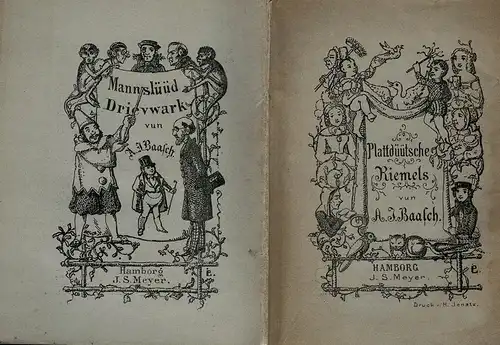 Mannslüüd
Drievwark
vun
A. J. Baasch.
Hamborg
J. S. Meyer.
Plattdüütsche
Riemels
vun
A. J. Baasch.
HAMBORG
J. S. Meyer.
Druck v. H.